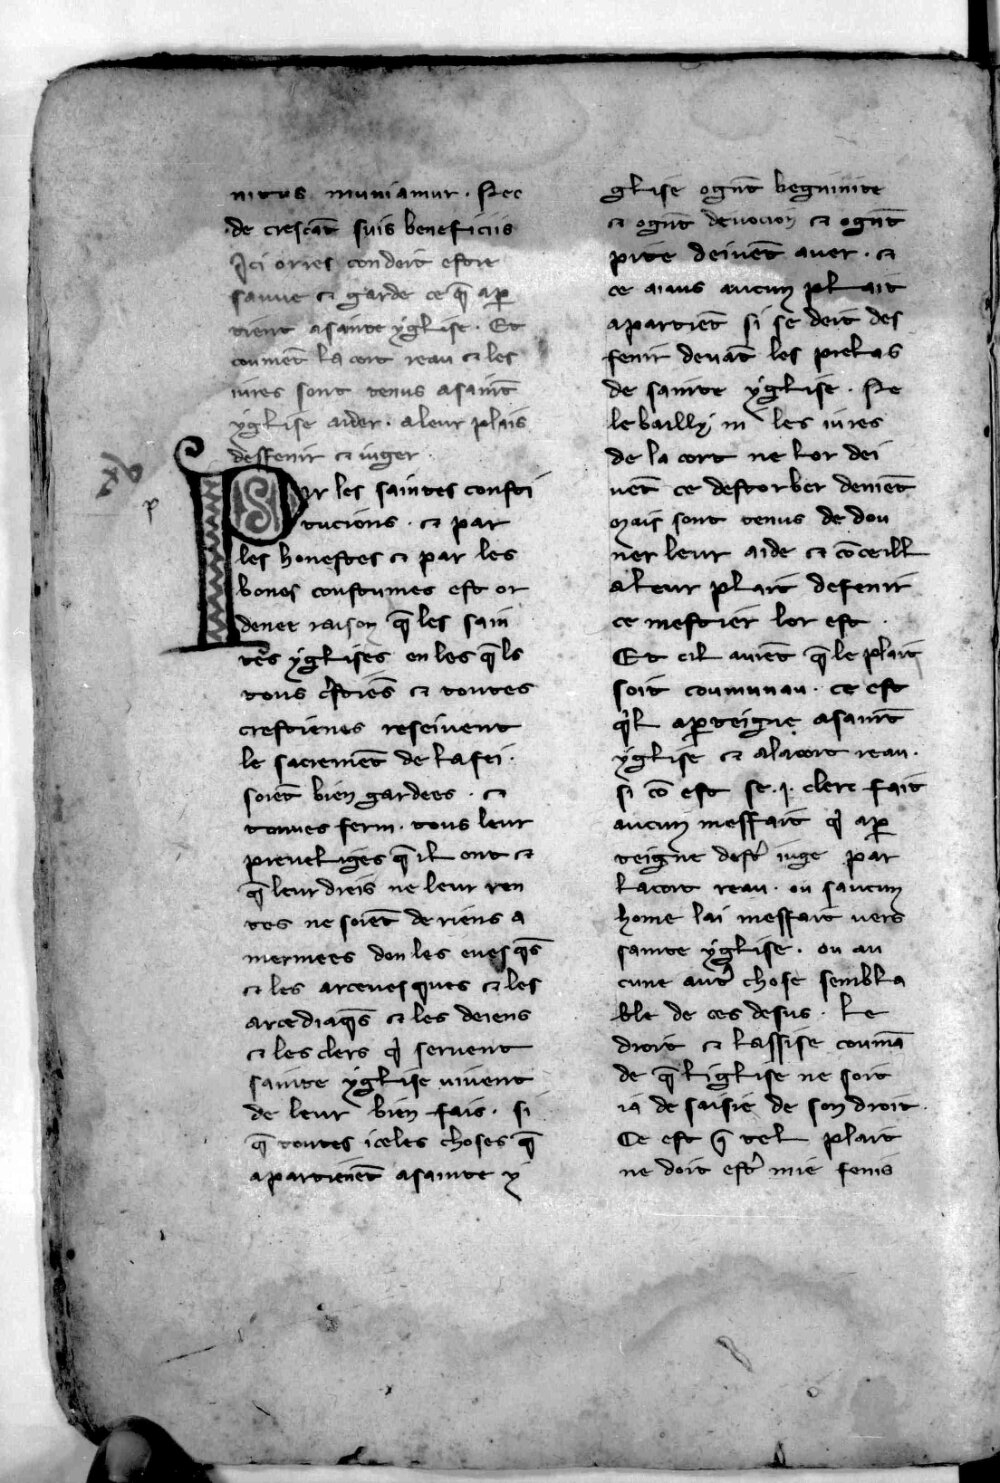 nitus muniamur . Nec
de crescãt suis beneficiis
Ici orres con doit estre
sauue & garde ce q̃ ap̱
tient a sainte yglise . Et
coument la cort reau & les
iures sont tenus a saint̃
yglise aider . a leur plais
deffenir & iuger .
Par les saintes consti
tucions . & par
les honestes & par les
bones coustumes est or
denee raison q̃ les sain
tes yglises en les q̃ls
tous c̃stiẽs & toutes
crestienes reseivent
le sacremẽt de la fei .
soiẽt bien gardees . &
tenues ferm . tous leur
preueliges q̃ il ont &
q̃ leur dreis ne leur ren
tes ne soiẽt de riens a
mermees don les euesq̃s
& les arceuesques & les
arcediaq̃s & les deiens
& les clers q̓ seruent
sainte yglise uiuent
de leur bien fais . si
q̃ toutes iceles choses q̃
apartienẽt a sainte y
glise ognt̃ begninite
& ognt̃ deuocion & ognt̃
pite deiuẽt auer . &
ce aiaus aucun plait
apartiẽt si se deit des
fenir deuãt les prelas
de sainte yglise . Ne
le bailly ni les iures
de la cort ne lor dei
uẽt ce destorber deniẽt
mais sont tenus de dou
ner leur aide & cõceill
a leur plait defenir
ce mestier lor est .
Et cil auiẽt q̃ le plait
soit coumunau . ce est
q̓l ap̱teigne a saint̃
yglise & a la cort reau .
si cõ est se .i. clerc fait
aucun meffait q̓ ap̱
teigne destr̃ iuge par
la cort reau . ou saucun
home lai meffait uers
sainte yglise . ou au
cune autr̃ chose sembla
ble de ces desus . Le
droit & lassise coumã
de q̃ liglise ne soit
ia de saisie de son droit .
Ce est q̃ tel plait
ne doit estr̃ mie fenis
p